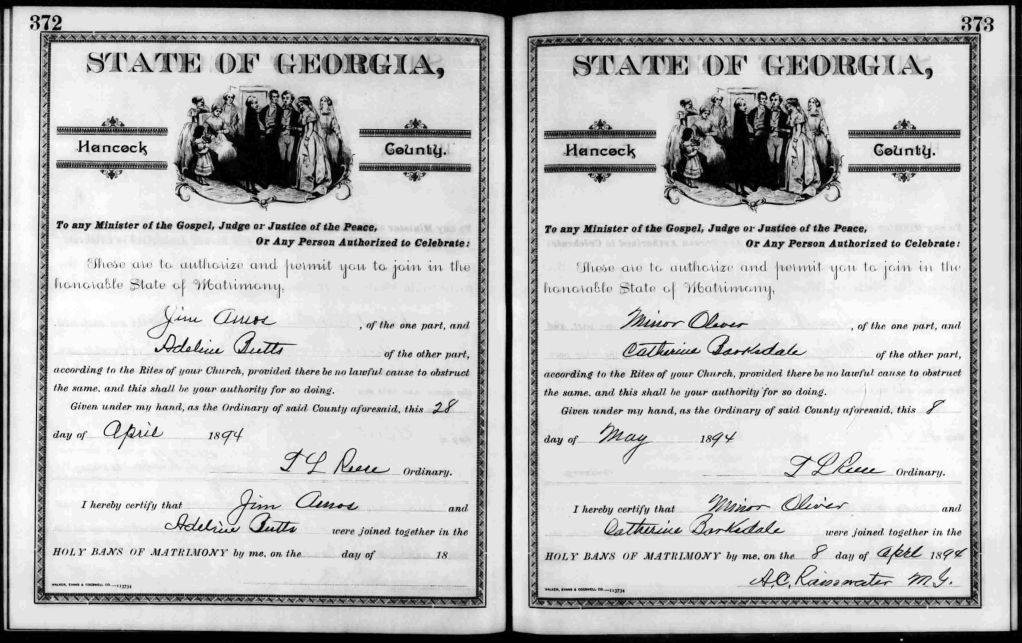 372
STATE OF GEORGIA,
Hancock County.
To any Minister of the Gospel, Judge or Justice of the Peace,
Or Any Person Authorized to Celebrate:
These are to authorize and permit you to join in the
honorable State of Matrimony,
Jim Amos , of the one part, and
Adeline Butts of the other part,
according to the Rites of your Church, provided there be no lawful cause to obstruct
the same, and this shall be your authority for so doing.
Given under my hand, as the Ordinary of said County aforesaid, this 28
day of April 1894
T L Reese Ordinary.
I hereby certify that Jim Amos and
Adeline Butts were joined together in the
HOLY BANS OF MATRIMONY by me, on the day of 18
WALKER, EVANS & COGSWELL CO.—113734
373
STATE OF GEORGIA,
Hancock County.
To any Minister of the Gospel, Judge or Justice of the Peace,
Or Any Person Authorized to Celebrate:
These are to authorize and permit you to join in the
honorable State of Matrimony,
Minor Oliver , of the one part, and
Catherine Barksdale of the other part,
according to the Rites of your Church, provided there be no lawful cause to obstruct
the same, and this shall be your authority for so doing.
Given under my hand, as the Ordinary of said County aforesaid, this 8
day of May 1894
T L Reese Ordinary.
I hereby certify that Minor Oliver and
Catherine Barksdale were joined together in the
HOLY BANS OF MATRIMONY by me, on the 8 day of April 1894
A.C. Rainwater M.G.
WALKER, EVANS & COGSWELL CO.—113734